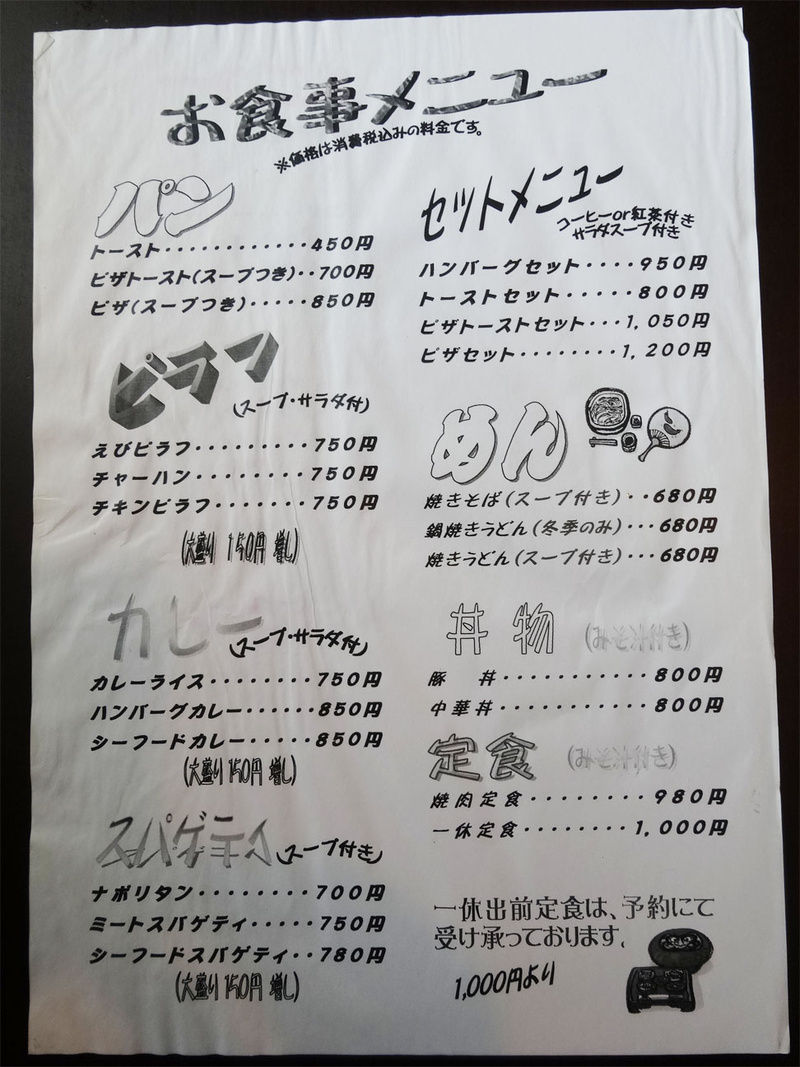 お食事メニュー
※価格は消費税込みの料金です。
パン
トースト・・・・・・・・・・・・450円
ピザトースト(スープつき)・・700円
ピザ(スープつき)・・・・・850円
ピラフ
(スープ・サラダ付)
えびピラフ・・・・・・・・・750円
チャーハン・・・・・・・・・750円
チキンピラフ・・・・・・・・750円
(大盛り 150円 増し)
カレー
(スープ・サラダ付)
カレーライス・・・・・・・・750円
ハンバーグカレー・・・・・850円
シーフードカレー・・・・・850円
(大盛り 150円 増し)
スパゲティ
(スープ付き)
ナポリタン・・・・・・・・・700円
ミートスパゲティ・・・・・750円
シーフードスパゲティ・・780円
(大盛り 150円 増し)
セットメニュー
コーヒーor紅茶付き
サラダスープ付き
ハンバーグセット・・・・950円
トーストセット・・・・・800円
ピザトーストセット・・・1,050円
ピザセット・・・・・・・・1,200円
めん
焼きそば(スープ付き)・・680円
鍋焼きうどん(冬季のみ)・・・680円
焼きうどん(スープ付き)・・・680円
丼物
(みそ汁付き)
豚 丼・・・・・・・・・・・800円
中華丼・・・・・・・・・・・800円
定食
(みそ汁付き)
焼肉定食・・・・・・・・980円
一休定食・・・・・・・・1,000円
一休出前定食は、予約にて
受け承っております。
1,000円より